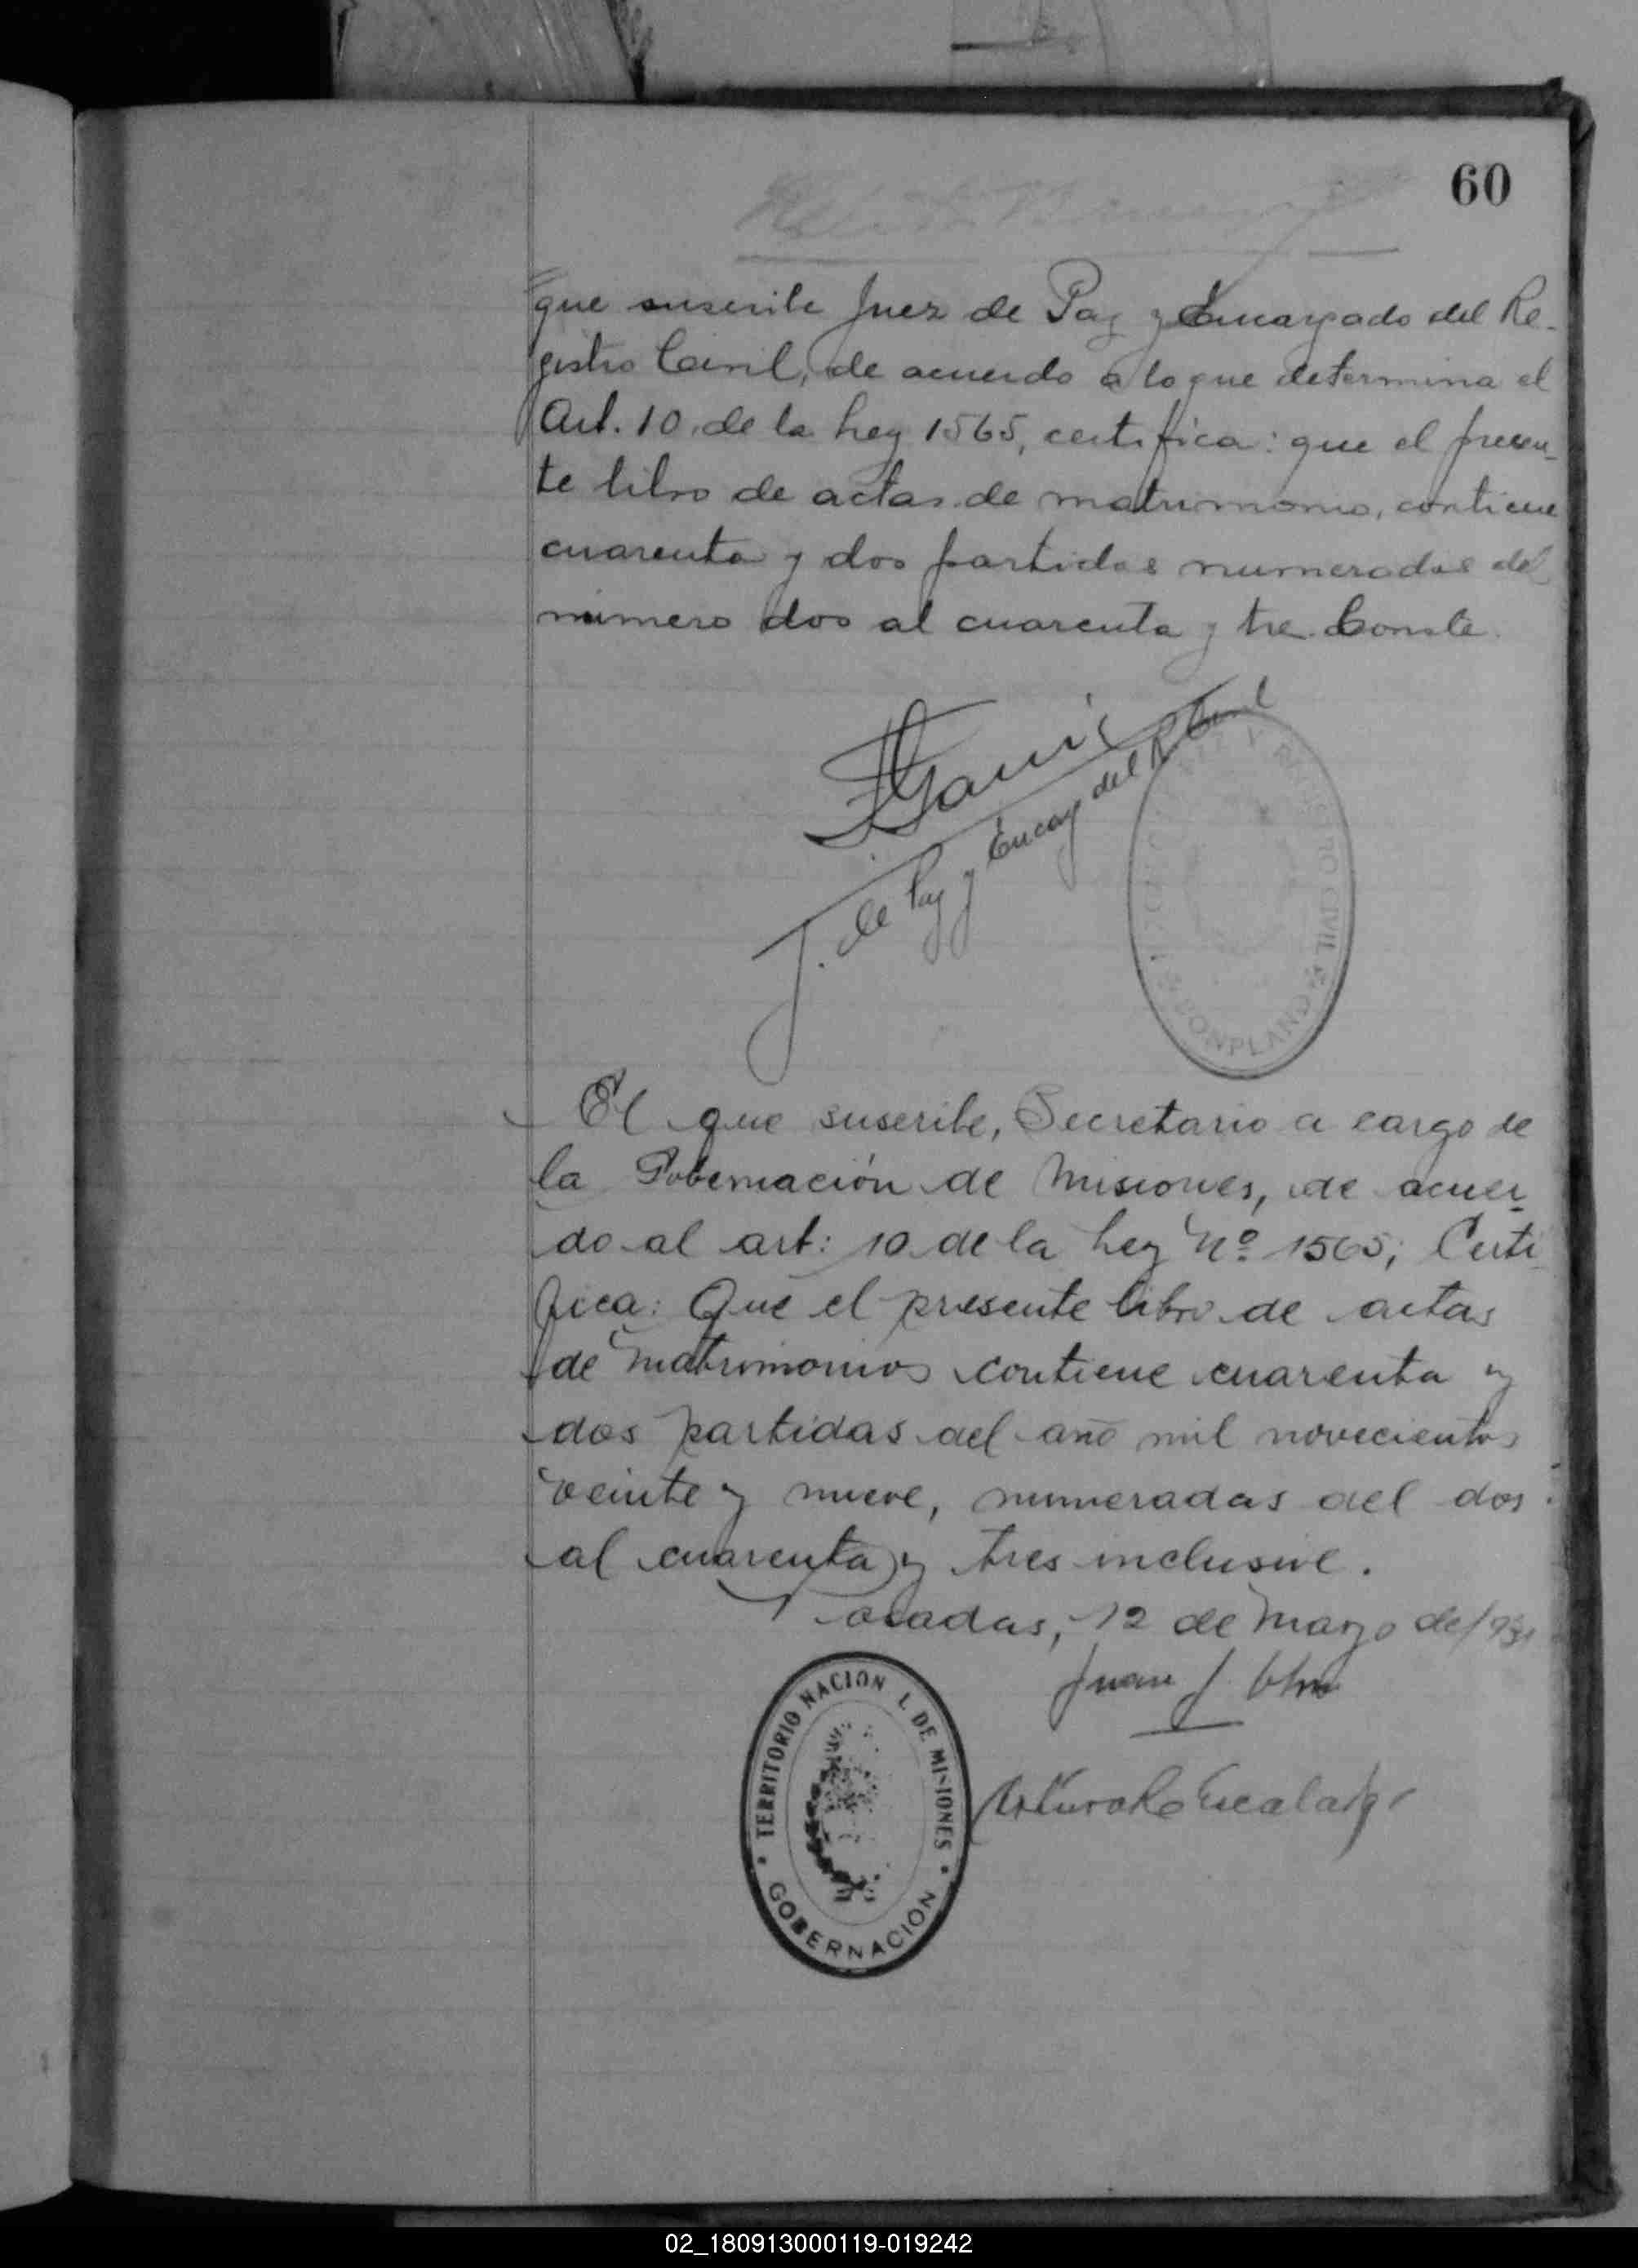 60
que suscribe Juez de Paz y Encargado del Re-
gistro Civil, de acuerdo a lo que determina el
Art. 10 de la Ley 1565, certifica: que el presen-
te libro de actas de matrimonio, contiene
cuarenta y dos partidas numeradas del
número dos al cuarenta y tre. Conste.
J. de Paz y Encarg del R. Civil
REGISTRO CIVIL
BONPLAND
El que suscribe, Secretario a cargo de
la Gobernación de Misiones, de acuer-
do al art: 10 de la Ley Nº 1565; Certi
fica: Que el presente libro de actas
de Matrimonios contiene cuarenta y
dos partidas del año mil novecientos
veinte y nueve, numeradas del dos
al cuarenta y tres inclusive.
Posadas, 12 de Marzo de
Juan J.
TERRITORIO NACION L DE MISIONES
GOBERNACION
02_180913000119-019242